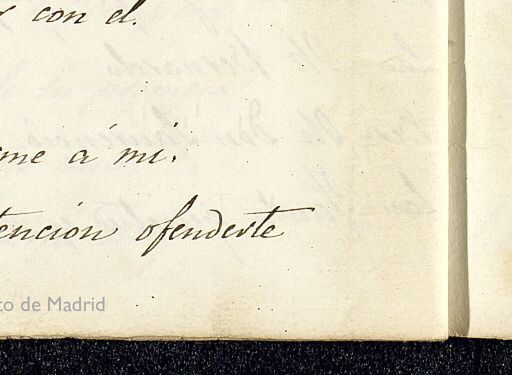 con el.
me á mi.
tencion ofenderte
to de Madrid